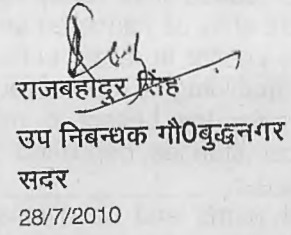 राजबहादुर सिंह
उप निबन्धक गौ0बुद्धनगर
सदर
28/7/2010